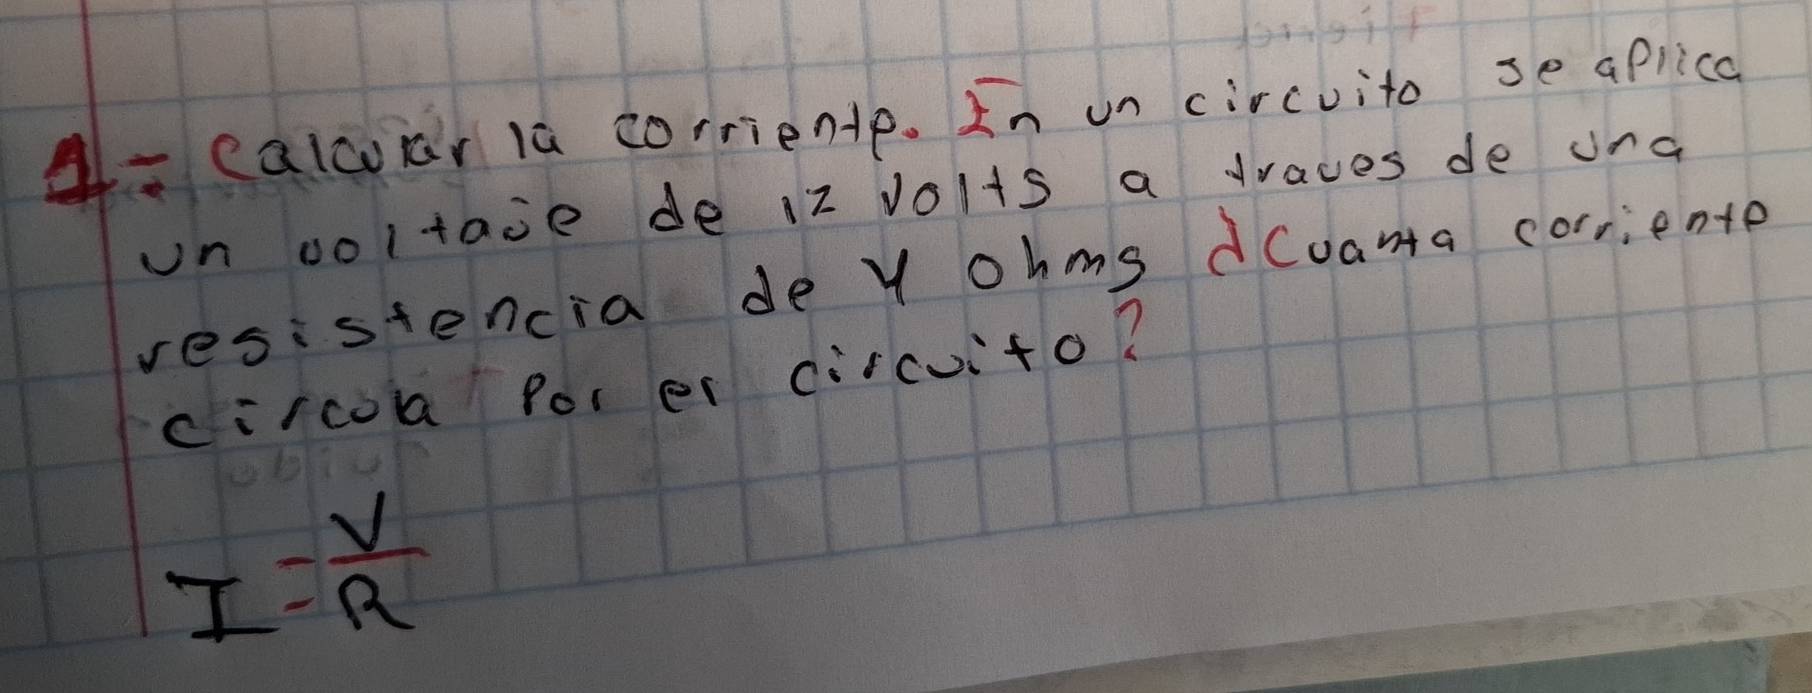 1-: Calcular la corriente. En un circuito se aplica
un voltaje de 12 volts a traves de una
resistencia de 4 ohms ¿Cuanta corriente
circula por el circuito?
I = V/R